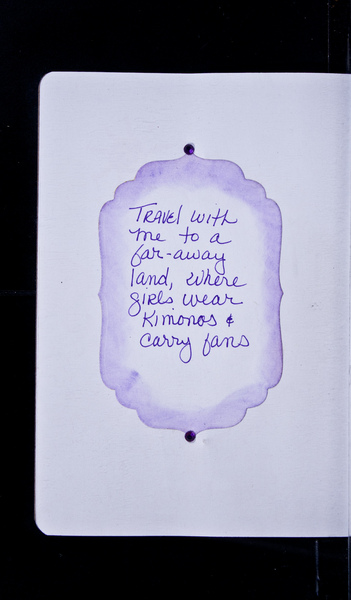 Travel with
me to a
far-away
land, where
girls wear
Kimonos &
carry fans